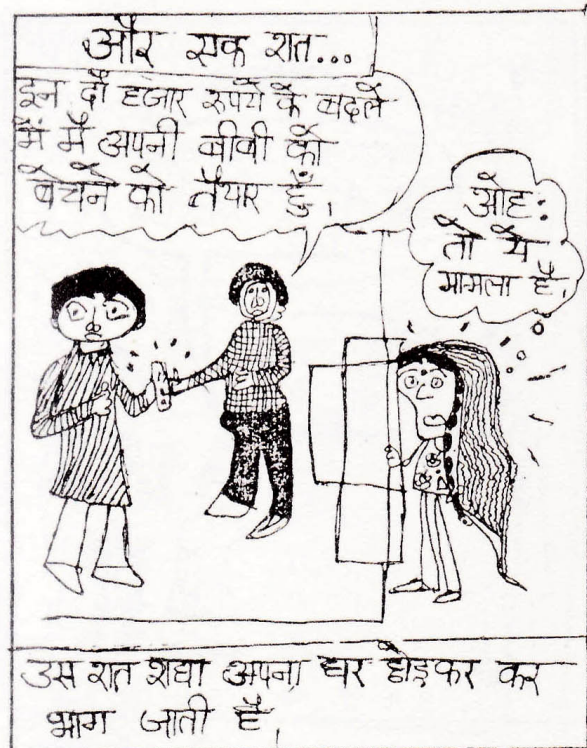 और एक रात...
इन दो हजार रुपये के बदले
में मैं अपनी बीवी को
बेचने को तैयार हूँ।
ओह:
तो ये
मामला है।
उस रात राधा अपना घर छोड़कर कर
भाग जाती है।